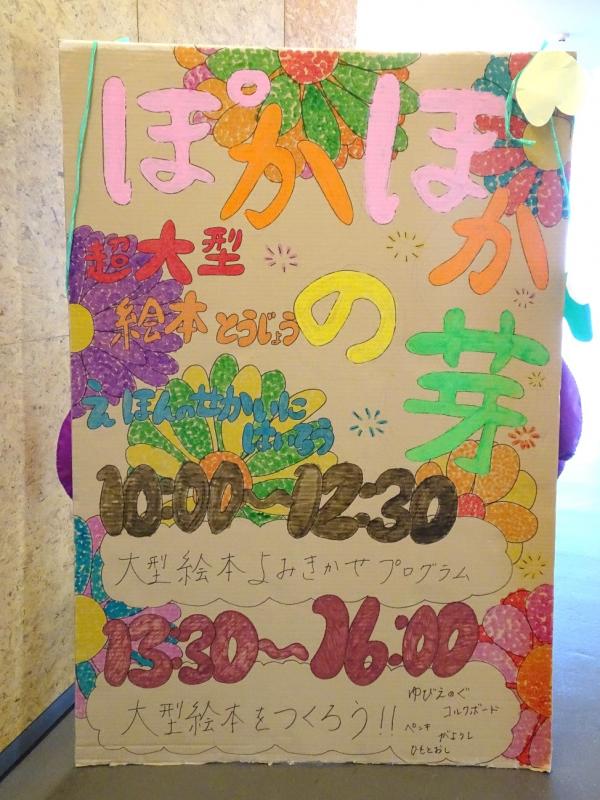 ぽかぽか
の
芽
超大型
絵本とうじょう
えほんのせかいに
はいろう
10:00〜12:30
大型絵本よみきかせプログラム
13:30〜16:00
大型絵本をつくろう!!
ゆびえのぐ
コルクボード
ペンキ
がようし
ひもとおし